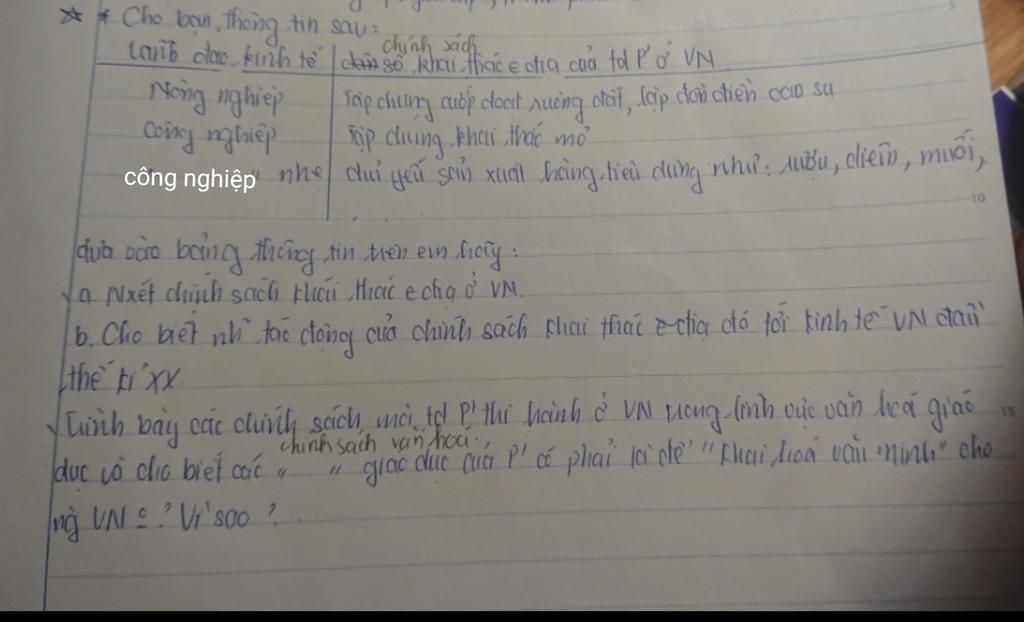 * Cho bạn thông tin sau:
Lãnh đạo kinh tế | chính sách khai thác c địa của td P' ở VN
Nông nghiệp | Tập chung cướp đoạt ruộng đất, lập đồn điền cao su
Công nghiệp | Tập chung khai thác mỏ
công nghiệp nhẹ | chủ yếu sản xuất hàng tiêu dùng như: rượu, diêm, muối,
dựa vào bảng thông tin trên em hãy:
a. Nxét chính sách khai thác c địa ở VN.
b. Cho biết nh~ tác động của chính sách khai thác c địa đó tới kinh tế VN đầu
thế kỉ XX
Trình bày các chính sách mà td P' thi hành ở VN trong lĩnh vực văn hoá giáo
dục và cho biết các chính sách văn hoá, " " giáo dục của P' có phải là để "khai hoá văn minh" cho
ng VN ? Vì sao ?
10
15